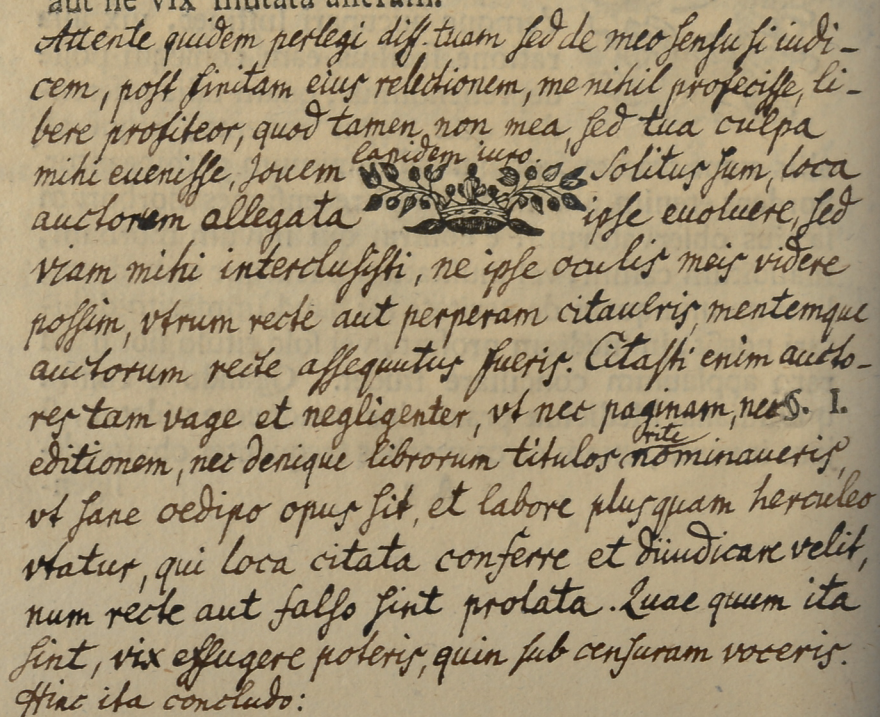 aut ne vix mutata
Attente quidem perlegi diss. tuam sed de meo sensu si iudi-
cem, post finitam eius relectionem, me nihil profecisse, li-
bere profiteor, quod tamen non mea, sed tua culpa
lapidem iuro.
mihi evenisse, Jovem solitus sum, loca
auctorum allegata ipse evoluere, sed
viam mihi interclusisti, ne ipse oculis meis videre
possim, vtrum recte aut perperam citaueris, mentemque
auctorum recte assequutus fueris. Citasti enim aucto-
res tam vage et negligenter, vt nec paginam, nec §. I.
rite
editionem, nec denique librorum titulos nominaueris,
vt sane oedipo opus sit, et labore plusquam herculeo
vtatur, qui loca citata conferre et diiudicare velit,
num recte aut falso sint prolata. Quae quum ita
sint, vix effugere poteris, quin sub censuram voceris.
Hinc ita concludo: